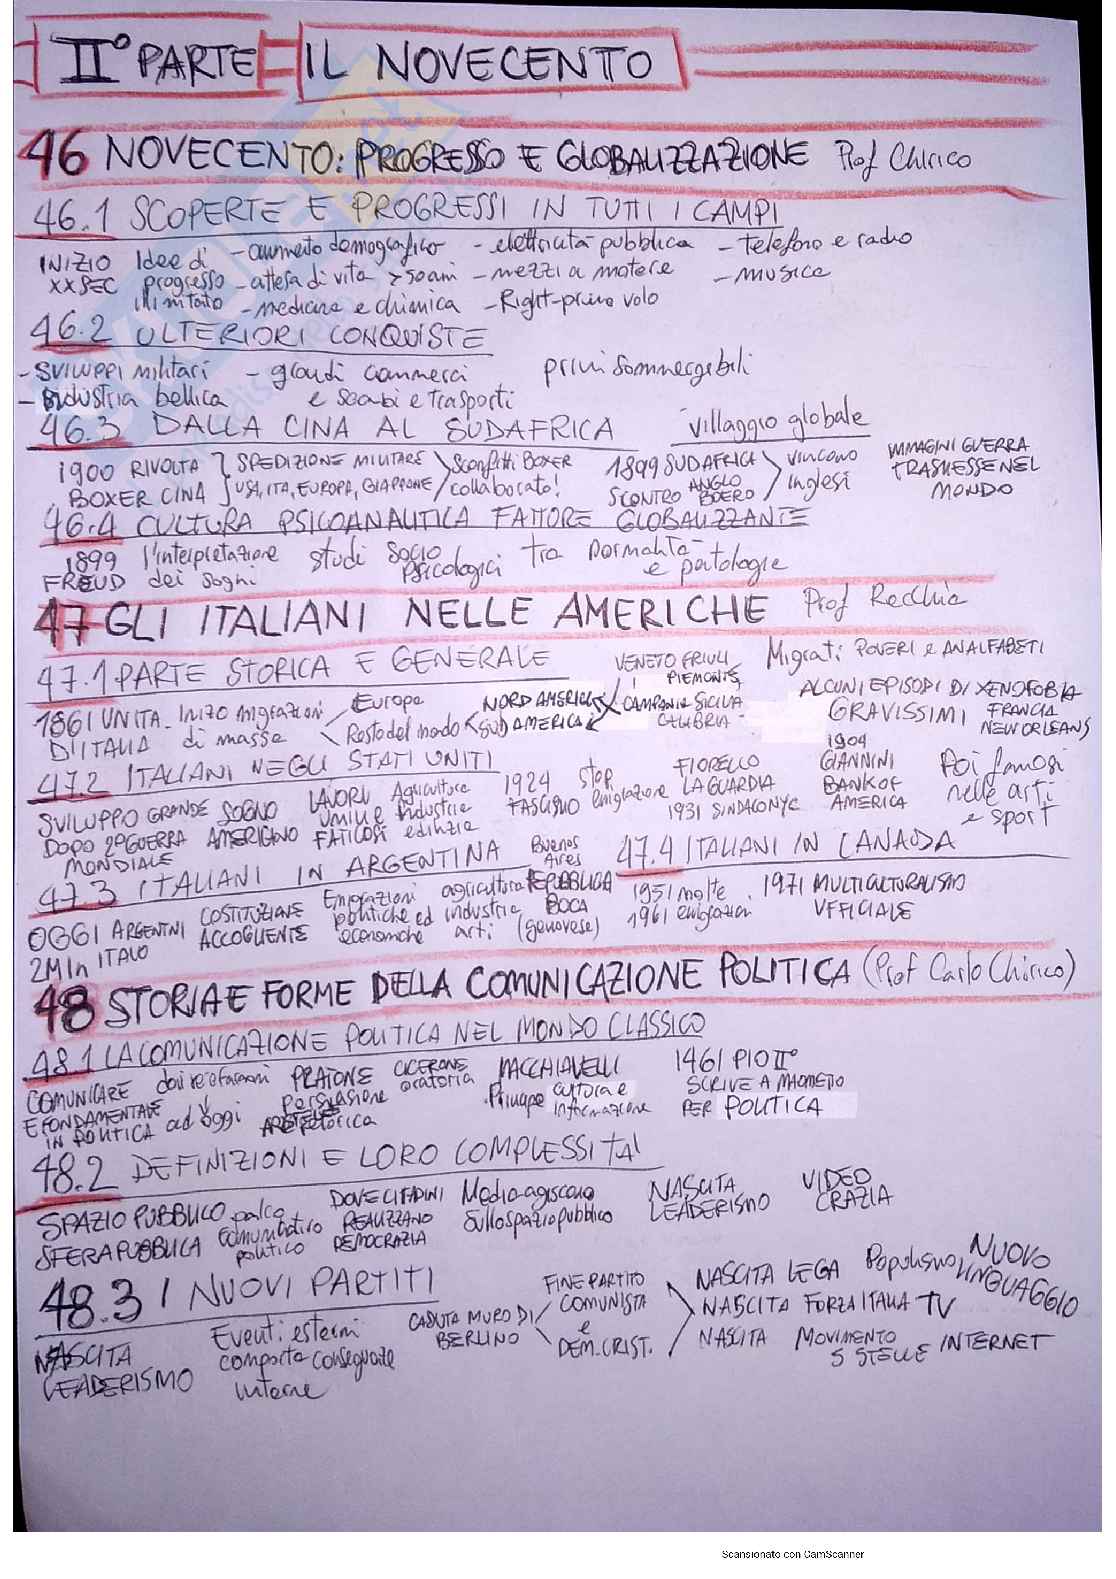 IIº PARTE IL NOVECENTO
46 NOVECENTO: PROGRESSO E GLOBALIZZAZIONE Prof Chirico
46.1 SCOPERTE E PROGRESSI IN TUTTI I CAMPI
INIZIO XX SEC
Idee di progresso illimitato
- aumento demografico
- attesa di vita > 50 anni
- medicina e chimica
- elettricità pubblica
- mezzi a motore
- Right - primo volo
- telefono e radio
- musica
46.2 ULTERIORI CONQUISTE
- SVILUPPI militari
- industria bellica
- grandi commerci
e scambi e trasporti
primi sommergibili
46.3 DALLA CINA AL SUDAFRICA
villaggio globale
1900 RIVOLTA
BOXER CINA
SPEDIZIONE MILITARE
USA, ITA, EUROPA, GIAPPONE
Sconfitti BOXER
collaborato!
1899 SUDAFRICA
SCONTRO ANGLO BOERO
vincono
inglesi
IMMAGINI GUERRA
TRASMESSE NEL
MONDO
46.4 CULTURA PSICOANALITICA FATTORE GLOBALIZZANTE
1899
FREUD
l'interpretazione
dei sogni
studi socio psicologici
tra normalità
e patologie
47 GLI ITALIANI NELLE AMERICHE Prof Recchia
47.1 PARTE STORICA E GENERALE
1861 UNITA
D'ITALIA
Inizio migrazioni
di massa
Europa
Resto del mondo
NORD AMERICA
SUD AMERICA
VENETO FRIULI
PIEMONTE
CAMPANIA SICILIA
CALABRIA
Migrati POVERI e ANALFABETI
ALCUNI EPISODI DI XENOFOBIA
GRAVISSIMI
FRANCIA
NEW ORLEANS
47.2 ITALIANI NEGLI STATI UNITI
SVILUPPO GRANDE
DOPO 2ª GUERRA
MONDIALE
SOGNO
AMERICANO
LAVORI
UMILI E
FATICOSI
Agricoltura
Industria
edilizia
1924
FASCISMO
stop
emigrazione
FIORELLO
LA GUARDIA
1931 SINDACO NYC
1904
GIANNINI
BANK OF
AMERICA
Poi famosi
nelle arti
e sport
47.3 ITALIANI IN ARGENTINA
OGGI ARGENTINI
2Mln ITALO
COSTITUZIONE
ACCOGLIENTE
Emigrazioni
politiche ed
economiche
agricoltura
industria
arti
Buenos
Aires
REPUBBLICA
BOCA
(genovese)
47.4 ITALIANI IN CANADA
1951 molte
1961 emigrazioni
1971 MULTICULTURALISMO
UFFICIALE
48 STORIA E FORME DELLA COMUNICAZIONE POLITICA (Prof Carlo Chirico)
48.1 LA COMUNICAZIONE POLITICA NEL MONDO CLASSICO
COMUNICARE
E FONDAMENTALE
IN POLITICA
dai re e faraoni
ad oggi
PLATONE
persuasione
ARISTOTELE
retorica
CICERONE
oratoria
MACCHIAVELLI
Principe cultura e
informazione
1461 PIO IIº
SCRIVE A MAOMETTO
PER POLITICA
48.2 DEFINIZIONI E LORO COMPLESSITA'
SPAZIO PUBBLICO
SFERA PUBBLICA
palco
comunicativo
politico
DOVE CITTADINI
REALIZZANO
DEMOCRAZIA
Media agiscono
sullo spazio pubblico
NASCITA
LEADERISMO
VIDEO
CRAZIA
48.3 I NUOVI PARTITI
NASCITA
LEADERISMO
Eventi esterni
comporta conseguenze
interne
CADUTA MURO DI
BERLINO
FINE PARTITO
COMUNISTA
e
DEM. CRIST.
NASCITA LEGA Populismo, NUOVO LINGUAGGIO
NASCITA FORZA ITALIA TV
NASCITA MOVIMENTO 5 STELLE INTERNET
Scansionato con CamScanner